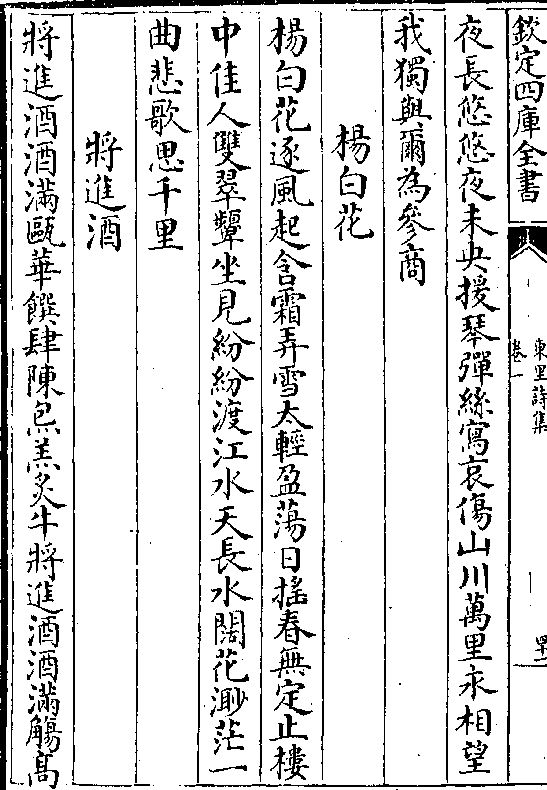 欽定四庫全書
東里詩集
卷一
夜長悠悠夜未央援琴彈絲寫哀傷山川萬里永相望
我獨與爾為參商
楊白花
楊白花逐風起含霜弄雪太輕盈蕩日搖春無定止樓
中佳人雙翠顰坐見紛紛渡江水天長水闊花渺茫一
曲悲歌思千里
將進酒
將進酒酒滿甌華饌肆陳炰羔炙牛將進酒酒滿觴高